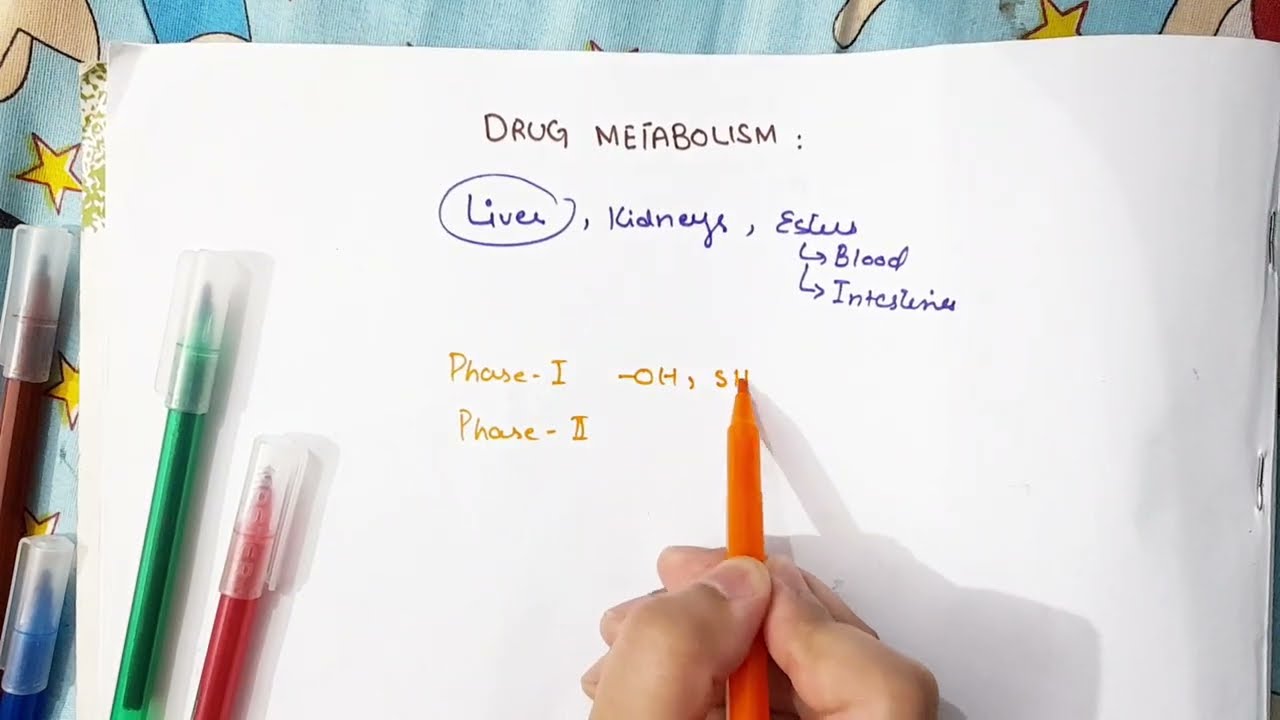 DRUG METABOLISM :
Liver, Kidneys, Esters
↳ Blood
↳ Intestines
Phase-I -OH, SH
Phase-II